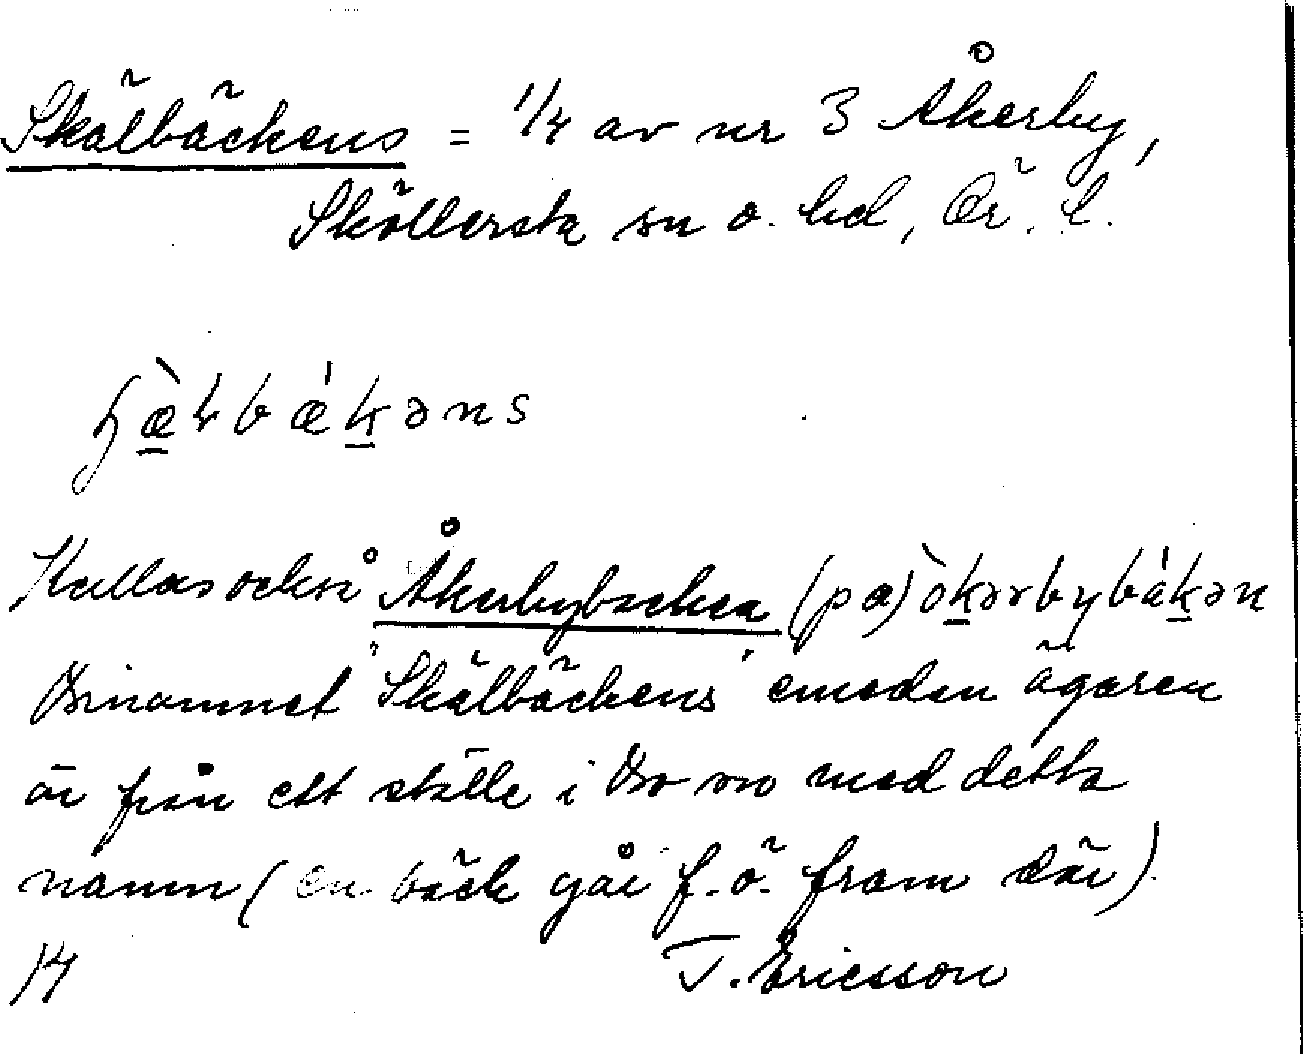 Skälbäckens = 1/4 av nr 3 Åkerby,
Sköllersta sn o. hd, Ör. l.
Kallas också Åkerbybacken (pa)
namnet "Skälbäckens" emedan ägaren
är från ett ställe i sn med detta
namn (en bäck går f. ö. fram där).
T. Ericsson